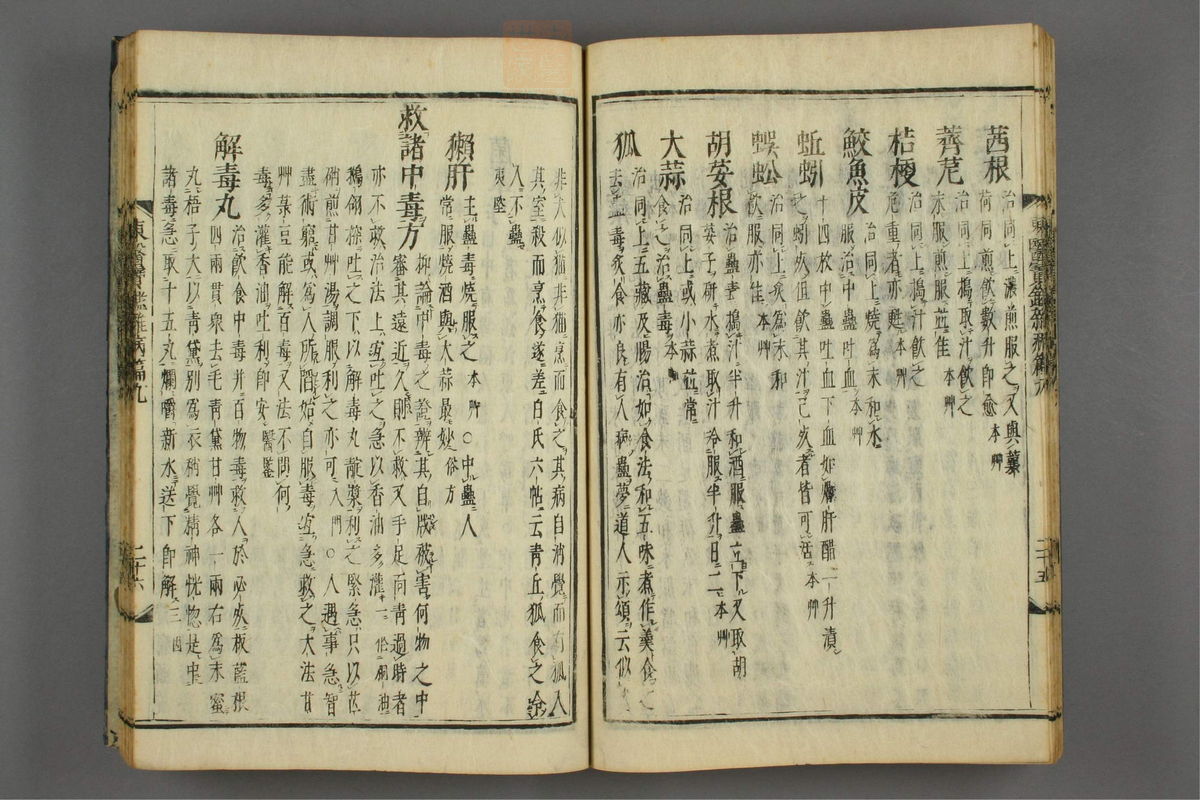 茜根 治同上濃煎服之又與蘘
荷同煎飲數升即愈 本艸
薺苨 治同上搗取汁飲之
末服煎服並佳 本艸
桔梗 治同上搗汁飲之
危重者亦甦 本艸
鮫魚皮 治同上燒爲末和水
服治中蠱吐血 本艸
蚯蚓 十四枚中蠱吐血下血如爛肝醋一升漬
之蚓死但飲其汁已死者皆可活 本艸
蜈蚣 治同上炙爲末和
飲服亦佳 本艸
胡荽根 治蠱毒搗汁半升和酒服蠱立下又取胡
荽子研水煮取汁冷服半升日二 本艸
大蒜 治同上或小蒜並常
食之治蠱毒 本
狐 治同上五藏及腸治如食法和五味煮作羹食之
去蠱毒炙食亦良有人病蠱夢道人示頌云似
東醫寶鑑雜病篇九 二十五
非犬似猫非猫烹而食之其病自消覺而有狐入
其室殺而烹食遂差白氏六帖云青丘狐食之令
人不蠱
獺肝 主蠱毒燒服之 本艸 ○中蠱人
常服燒酒與大蒜最妙 俗方
救諸中毒方 抑論中毒之證辨其自戕被害何物之中
審其遠近久則不救又手足面青過時者
亦不救治法上宜吐之急以香油多灌
鵝翎探吐之下以解毒丸靛漿利之緊急只以芒
硝煎甘艸湯調服利之亦可 入門 ○人遇事急智
盡術窮或爲人所陷始自服毒宜急救之大法甘
艸菉豆能解百毒又法不問何
毒多灌香油吐利即安 醫鑑
解毒丸 治飮食中毒并百物毒救人於必死板藍根
四兩貫衆去毛青黛甘艸各一兩右爲末蜜
丸梧子大以青黛別爲衣稍覺精神恍惚是中
諸毒急取十五丸爛嚼新水送下即解 三因
東醫寶鑑雜病篇九 二十六